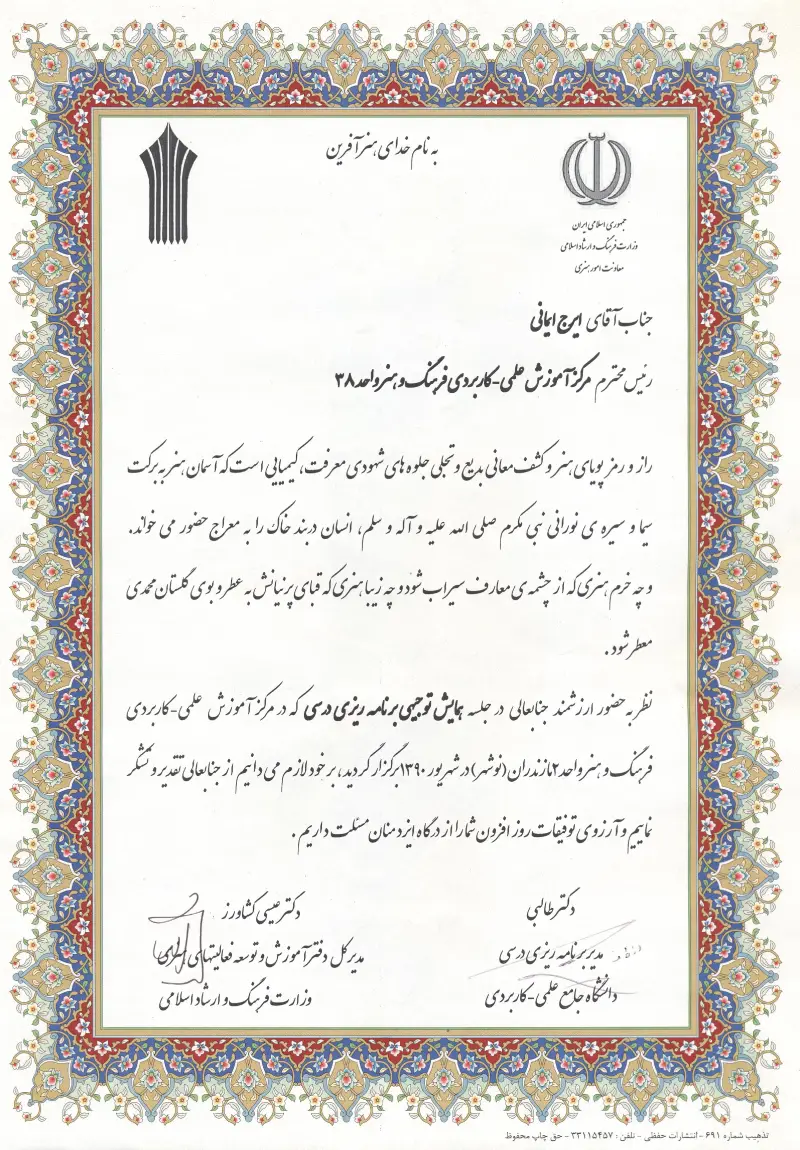 به نام خدای هنرآفرین
جمهوری اسلامی ایران
وزارت فرهنگ و ارشاد اسلامی
معاونت امور هنری
جناب آقای ایرج ایمانی
رئیس محترم مرکز آموزش علمی-کاربردی فرهنگ و هنر واحد ۳۸
راز و رمز پویای هنر و کشف معانی بدیع و تجلی جلوه های شهودی معرفت، کیمیایی است که آسمان هنر به برکت
سیما و سیره ی نورانی نبی مکرم صلی الله علیه و آله و سلم، انسان دربند خاک را به معراج حضور می خواند.
و چه خرم هنری که از چشمه ی معارف سیراب شود و چه زیبا هنری که قبای پرنیانش به عطر و بوی گلستان محمدی
معطر شود .
نظر به حضور ارزشمند جنابعالی در جلسه همایش توجیهی برنامه ریزی درسی که در مرکز آموزش علمی-کاربردی
فرهنگ و هنر واحد ۲ مازندران (نوشهر) در شهریور ۱۳۹۰ برگزار گردید، بر خود لازم می دانیم از جنابعالی تقدیر و تشکر
نماییم و آرزوی توفیقات روز افزون شما را از درگاه ایزد منان مسئلت داریم .
دکتر طالبی
مدیر برنامه ریزی درسی
دانشگاه جامع علمی-کاربردی
دکتر عیسی کشاورز
مدیرکل دفتر آموزش و توسعه فعالیتهای
وزارت فرهنگ و ارشاد اسلامی
تذهیب شماره ۶۹۱ - انتشارات حفظی - تلفن : ۳۳۱۱۵۴۵۷ - حق چاپ محفوظ